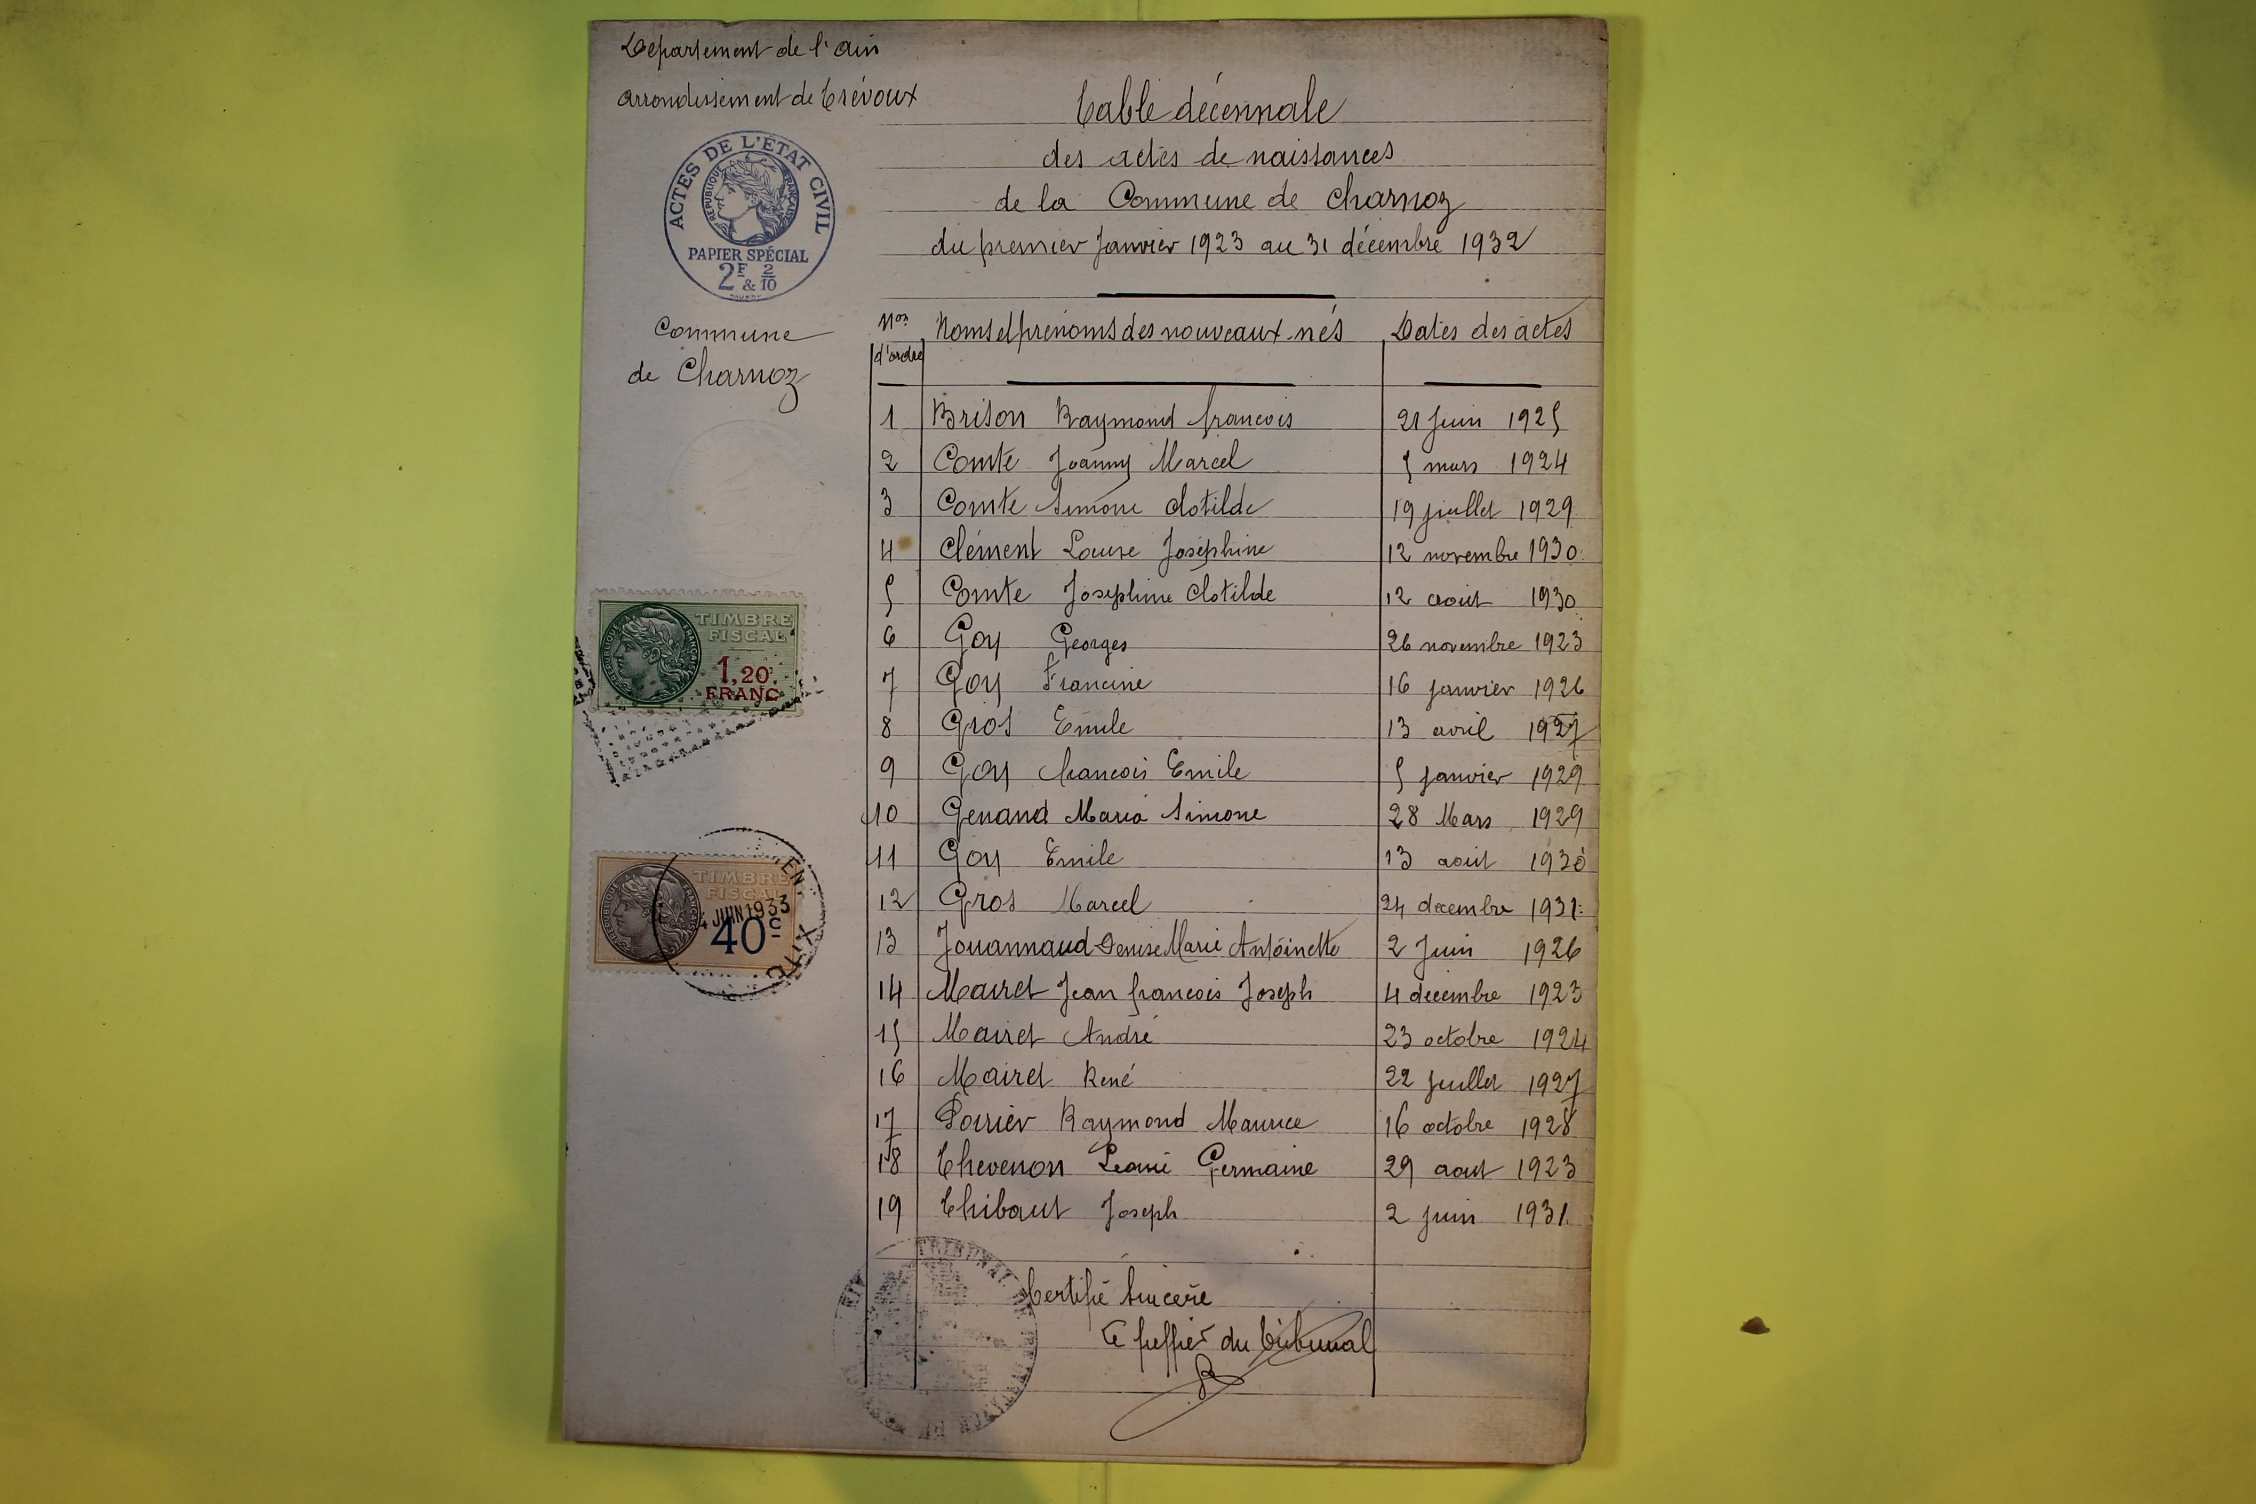 Département de l'Ain
arrondissement de Trévoux
Table décennale
des actes de naissances
de la Commune de Charnoz
du premier Janvier 1923 au 31 décembre 1932
ACTES DE L'ÉTAT CIVIL
RÉPUBLIQUE FRANÇAISE
PAPIER SPÉCIAL
2F & 2/10
Commune
de Charnoz
Nos d'ordre Noms et prénoms des nouveaux-nés Dates des actes
1 Brison Raymond francois 21 Juin 1925
2 Comte Joanny Marcel 5 mars 1924
3 Comte Simone Clotilde 19 juillet 1929
4 Clément Louise Joséphine 12 novembre 1930
5 Comte Josephine Clotilde 12 août 1930
6 Goy Georges 26 novembre 1923
7 Goy Francine 16 janvier 1926
8 Gros Emile 13 avril 1927
9 Goy francois Emile 5 janvier 1929
10 Genand Maria Simone 28 Mars 1929
11 Goy Emile 13 août 1930
12 Gros Marcel 24 décembre 1931
13 Jouannaud Denise Marie Antoinette 2 Juin 1926
14 Mairet Jean francois Joseph 4 décembre 1923
15 Mairet André 23 octobre 1924
16 Mairet René 22 juillet 1927
17 Poirier Raymond Maurice 16 octobre 1928
18 Thevenon Leonie Germaine 29 aout 1923
19 Thibaut Joseph 2 juin 1931
Certifié Sincère
Le greffier du tribunal
TIMBRE
FISCAL
1,20
FRANC
TIMBRE
FISCAL
4 JUIN 1933
40c
TRIBUNAL DE